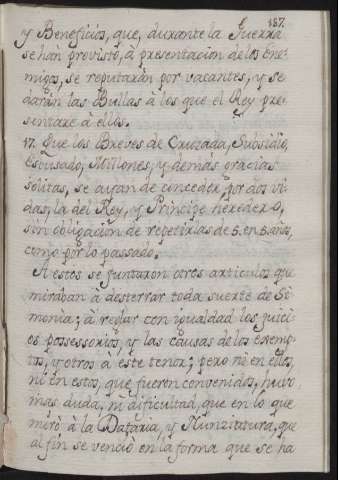 187.
y Beneficios, que, durante la Guerra
se han previsto, à presentacion de los Ene-
migos, se reputaràn por vacantes, y se
daràn las Bullas à los que el Rey pre-
sentare à ellos.
17. Que los Breves de Cruzada, Subsidio,
Escusado, Millones, y demàs gracias
solitas, se ayan de conceder por dos vi-
das, la del Rey, y Principe heredero,
sin obligacion de repetirlas de 5. en 5. años,
como por lo passado.
A estos se juntaron otros articulos que
miraban à desterrar toda suerte de Si-
monia; à reglar con igualdad los juici-
os possessorios, y las causas de los exemp-
tos, y otros à este tenor; pero ni en ellos,
ni en estos, que fueron convenidos, huvo
mas duda, ni dificultad, que en lo que
mirò à la Dataria, y Nunziatura, que
al fin se venciò en la forma que se ha